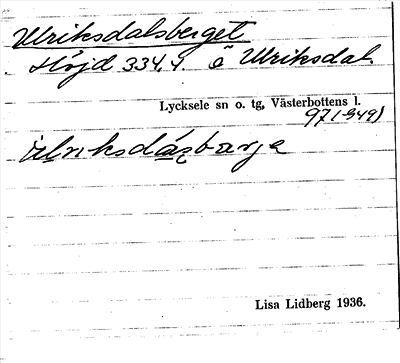 Ulriksdalsberget
Höjd 334,4. ö Ulriksdal.
Lycksele sn o. tg, Västerbottens l.
971-949)
ulriksdásbarje
Lisa Lidberg 1936.